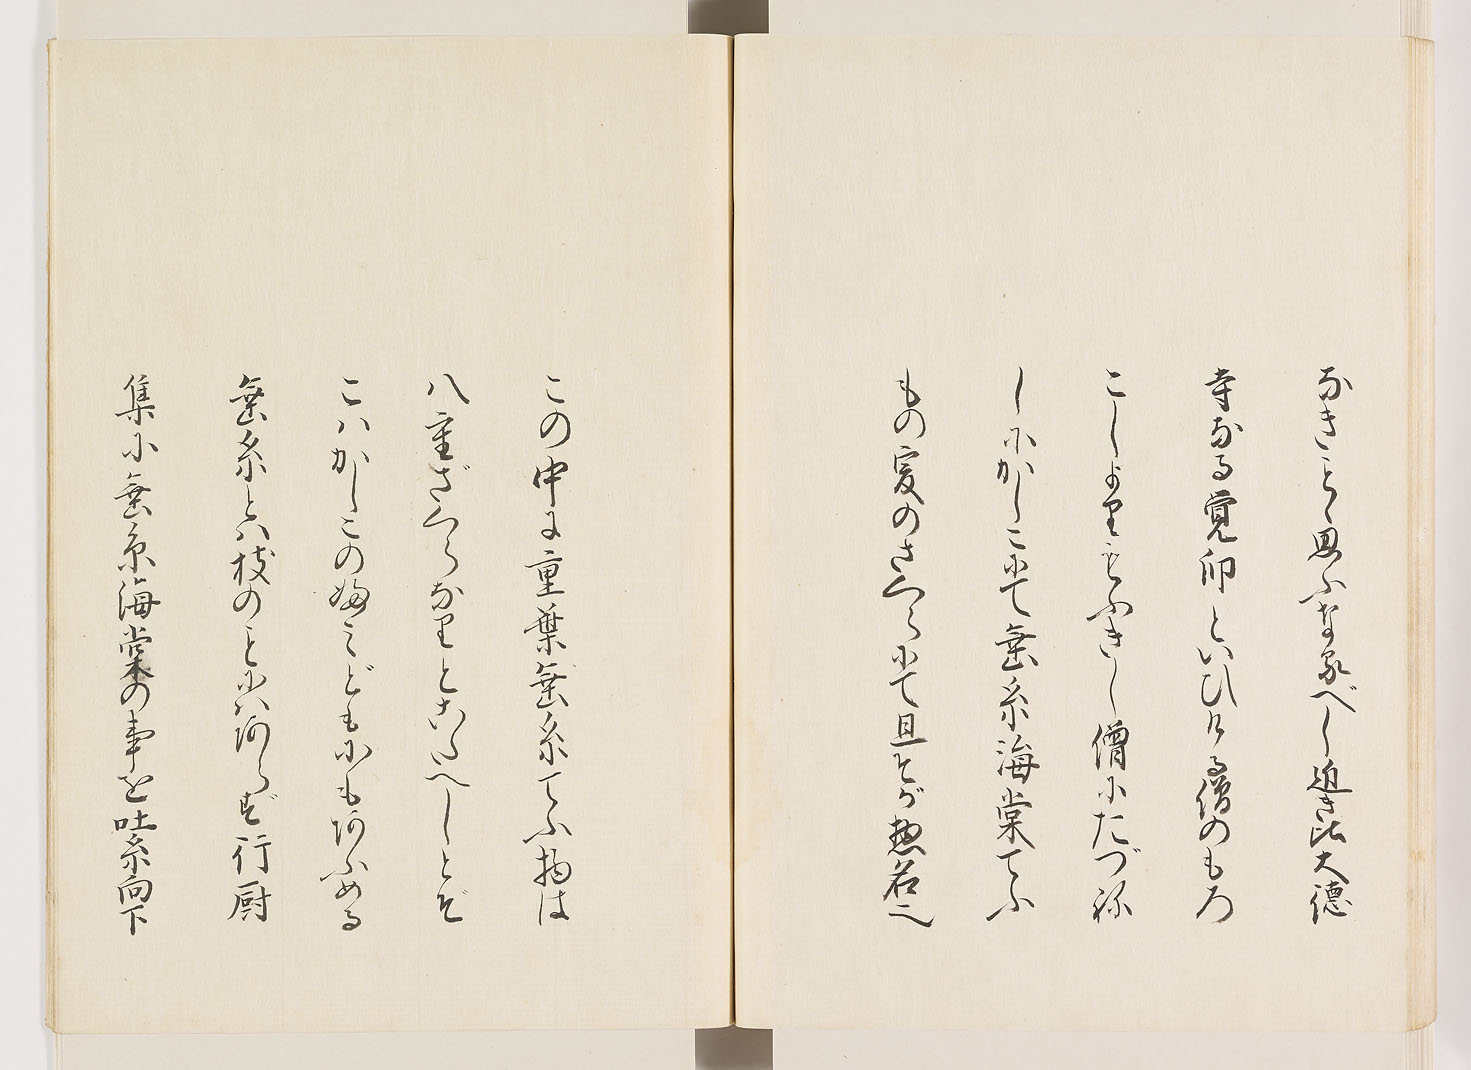 なきことゝ思ふなるべし近き比大徳
寺なる覚印といひける僧のもろ
こしより来ふきし僧にたづね
しにかしこにて垂糸海棠てふ
もの爰のさくらにて且そが惣名也
この中に重葉垂糸てふ物は
八重ざくらなりとこたへしとぞ
こハかしこのふミどもにもあふめる
垂糸とハ枝のことにハあらず行厨
集に垂糸海棠の事を吐糸向下